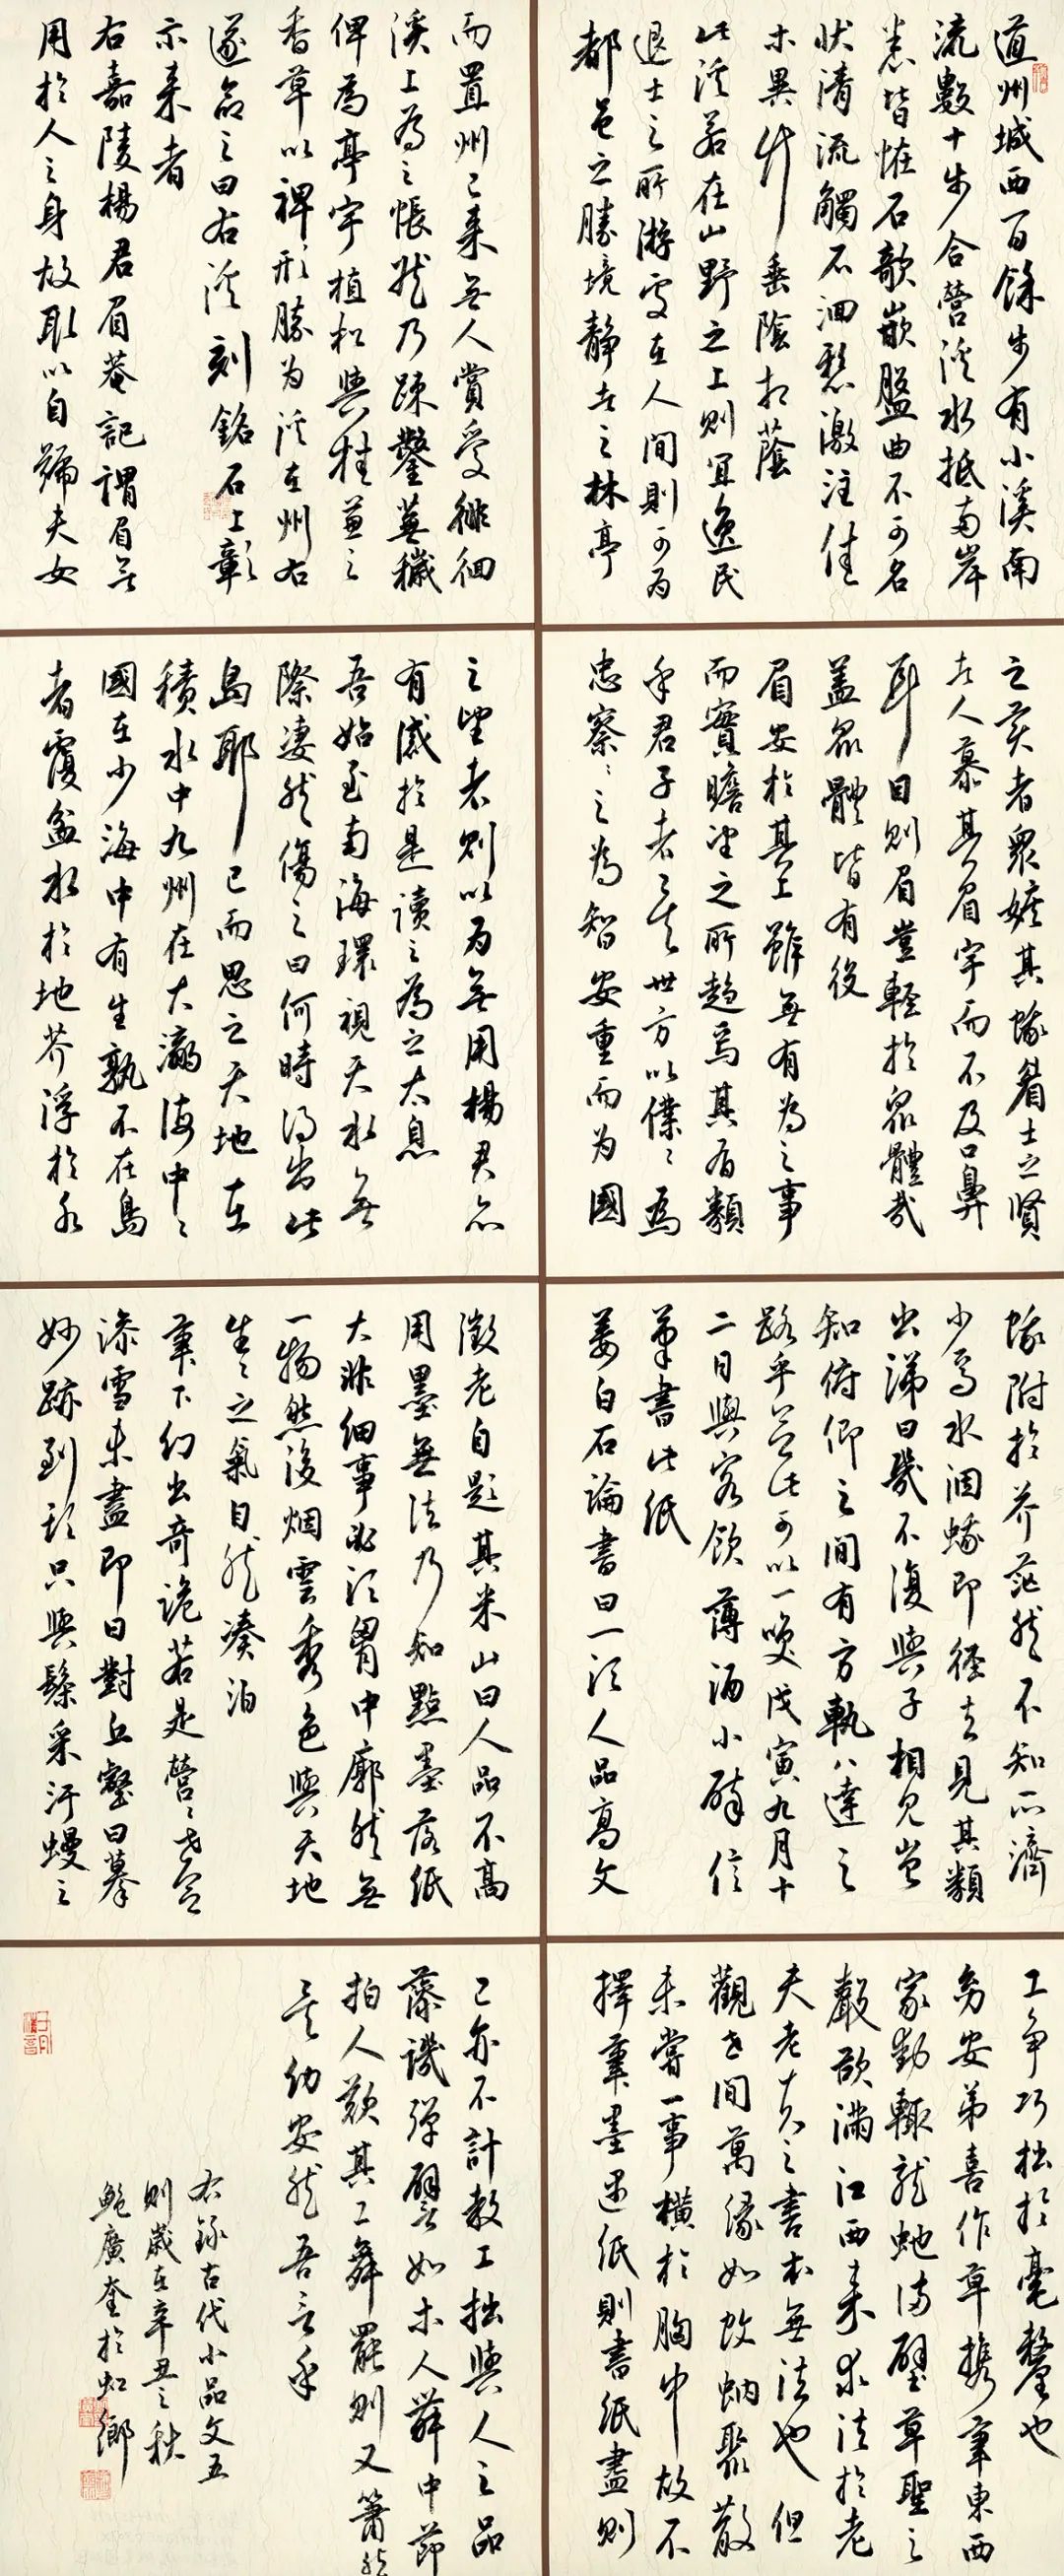 道州城西百餘步有小溪南
流數十步合營溪水抵兩岸
悉皆怪石欹嵌盤曲不可名
狀清流觸石洄懸激注佳
木異竹垂陰相蔭
此溪若在山野之上則宜逸民
退士之所游處在人間則可为
都邑之勝境靜者之林亭
而置州已來無人賞愛徘徊
溪上為之悵然乃疎鑿蕪穢
俾為亭宇植松與桂兼之
香草以裨形勝为溪在州右
遂命之曰右溪刻銘石上彰
示来者
右嘉陵楊君眉菴記謂眉無
用於人之身故取以自號夫女
之美者眾嫉其蛾眉士之賢
者人慕其眉宇而不及口鼻
耳目則眉豈輕於眾體哉
蓋眾體皆有役
眉安於其上雖無有為之事
而實瞻望之所趨焉其有類
乎君子者矣世方以僕僕為
忠察察之為智安重而为國
之望者則以为無用楊君亦
有感於是讀之為之太息
吾始至南海環視天水無
際凄然傷之曰何時得出此
島耶已而思之天地在
積水中九州在大瀛海中中
國在少海中有生孰不在島
者覆盆水於地芥浮於水
蟻附於芥茫然不知所濟
少焉水涸蟻即徑去見其類
出涕曰幾不復與子相見豈
知俯仰之間有方軌八達之
路乎念此可以一笑戊寅九月十
二日與客飲薄酒小醉信
筆書此紙
姜白石論書曰一須人品高文
徵老自題其米山曰人品不高
用墨無法乃知點墨落紙
大非細事必須胸中廓然無
一物然後烟雲秀色與天地
生生之氣自然湊泊
筆下幻出奇詭若是營營世念
澡雪未盡即日對丘壑日摹
妙跡到頭只與髹采汙墁之
工爭巧拙於毫釐也
幼安弟喜作草攜筆東西
家動輒龍虵滿壁草聖之
聲欲滿江西来求法於老
夫老夫之書本無法也但
觀世間萬緣如蚊蚋聚散
未嘗一事橫於胸中故不
擇筆墨遇紙則書紙盡則
已亦不計較工拙與人之品
藻譏彈譬如木人舞中節
拍人歎其工舞罷則又蕭然
矣幼安然吾言乎
右錄古代小品文五
則歲在辛丑之秋
鮑廣奎於虹鄉